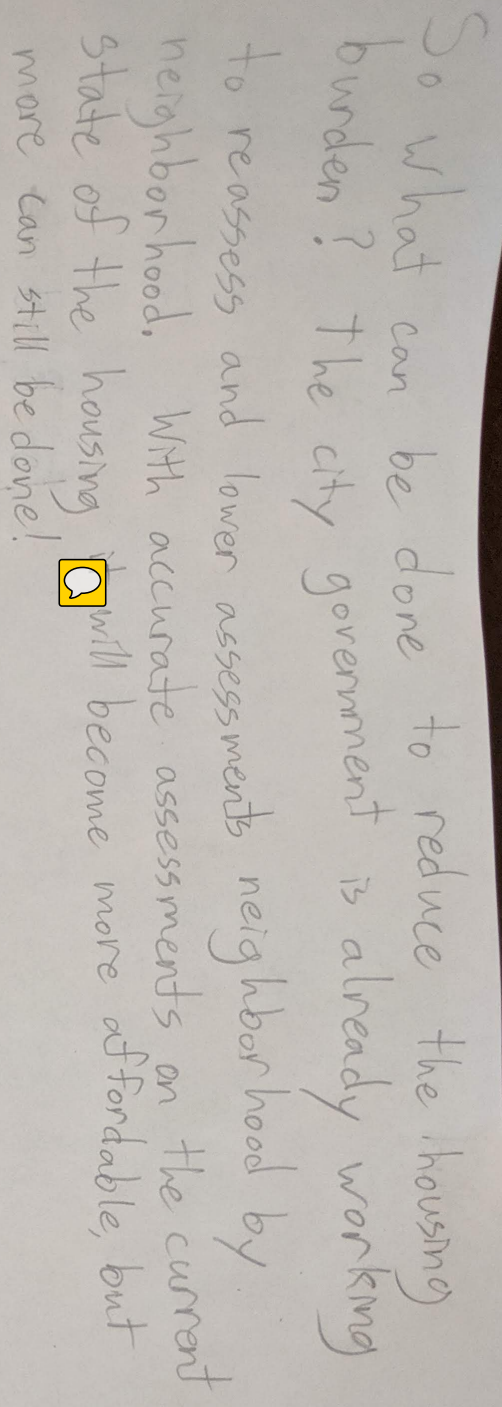 So what can be done to reduce the housing
burden? The city government is already working
to reassess and lower assessments neighborhood by
neighborhood. With accurate assessments on the current
state of the housing it will become more affordable, but
more can still be done!